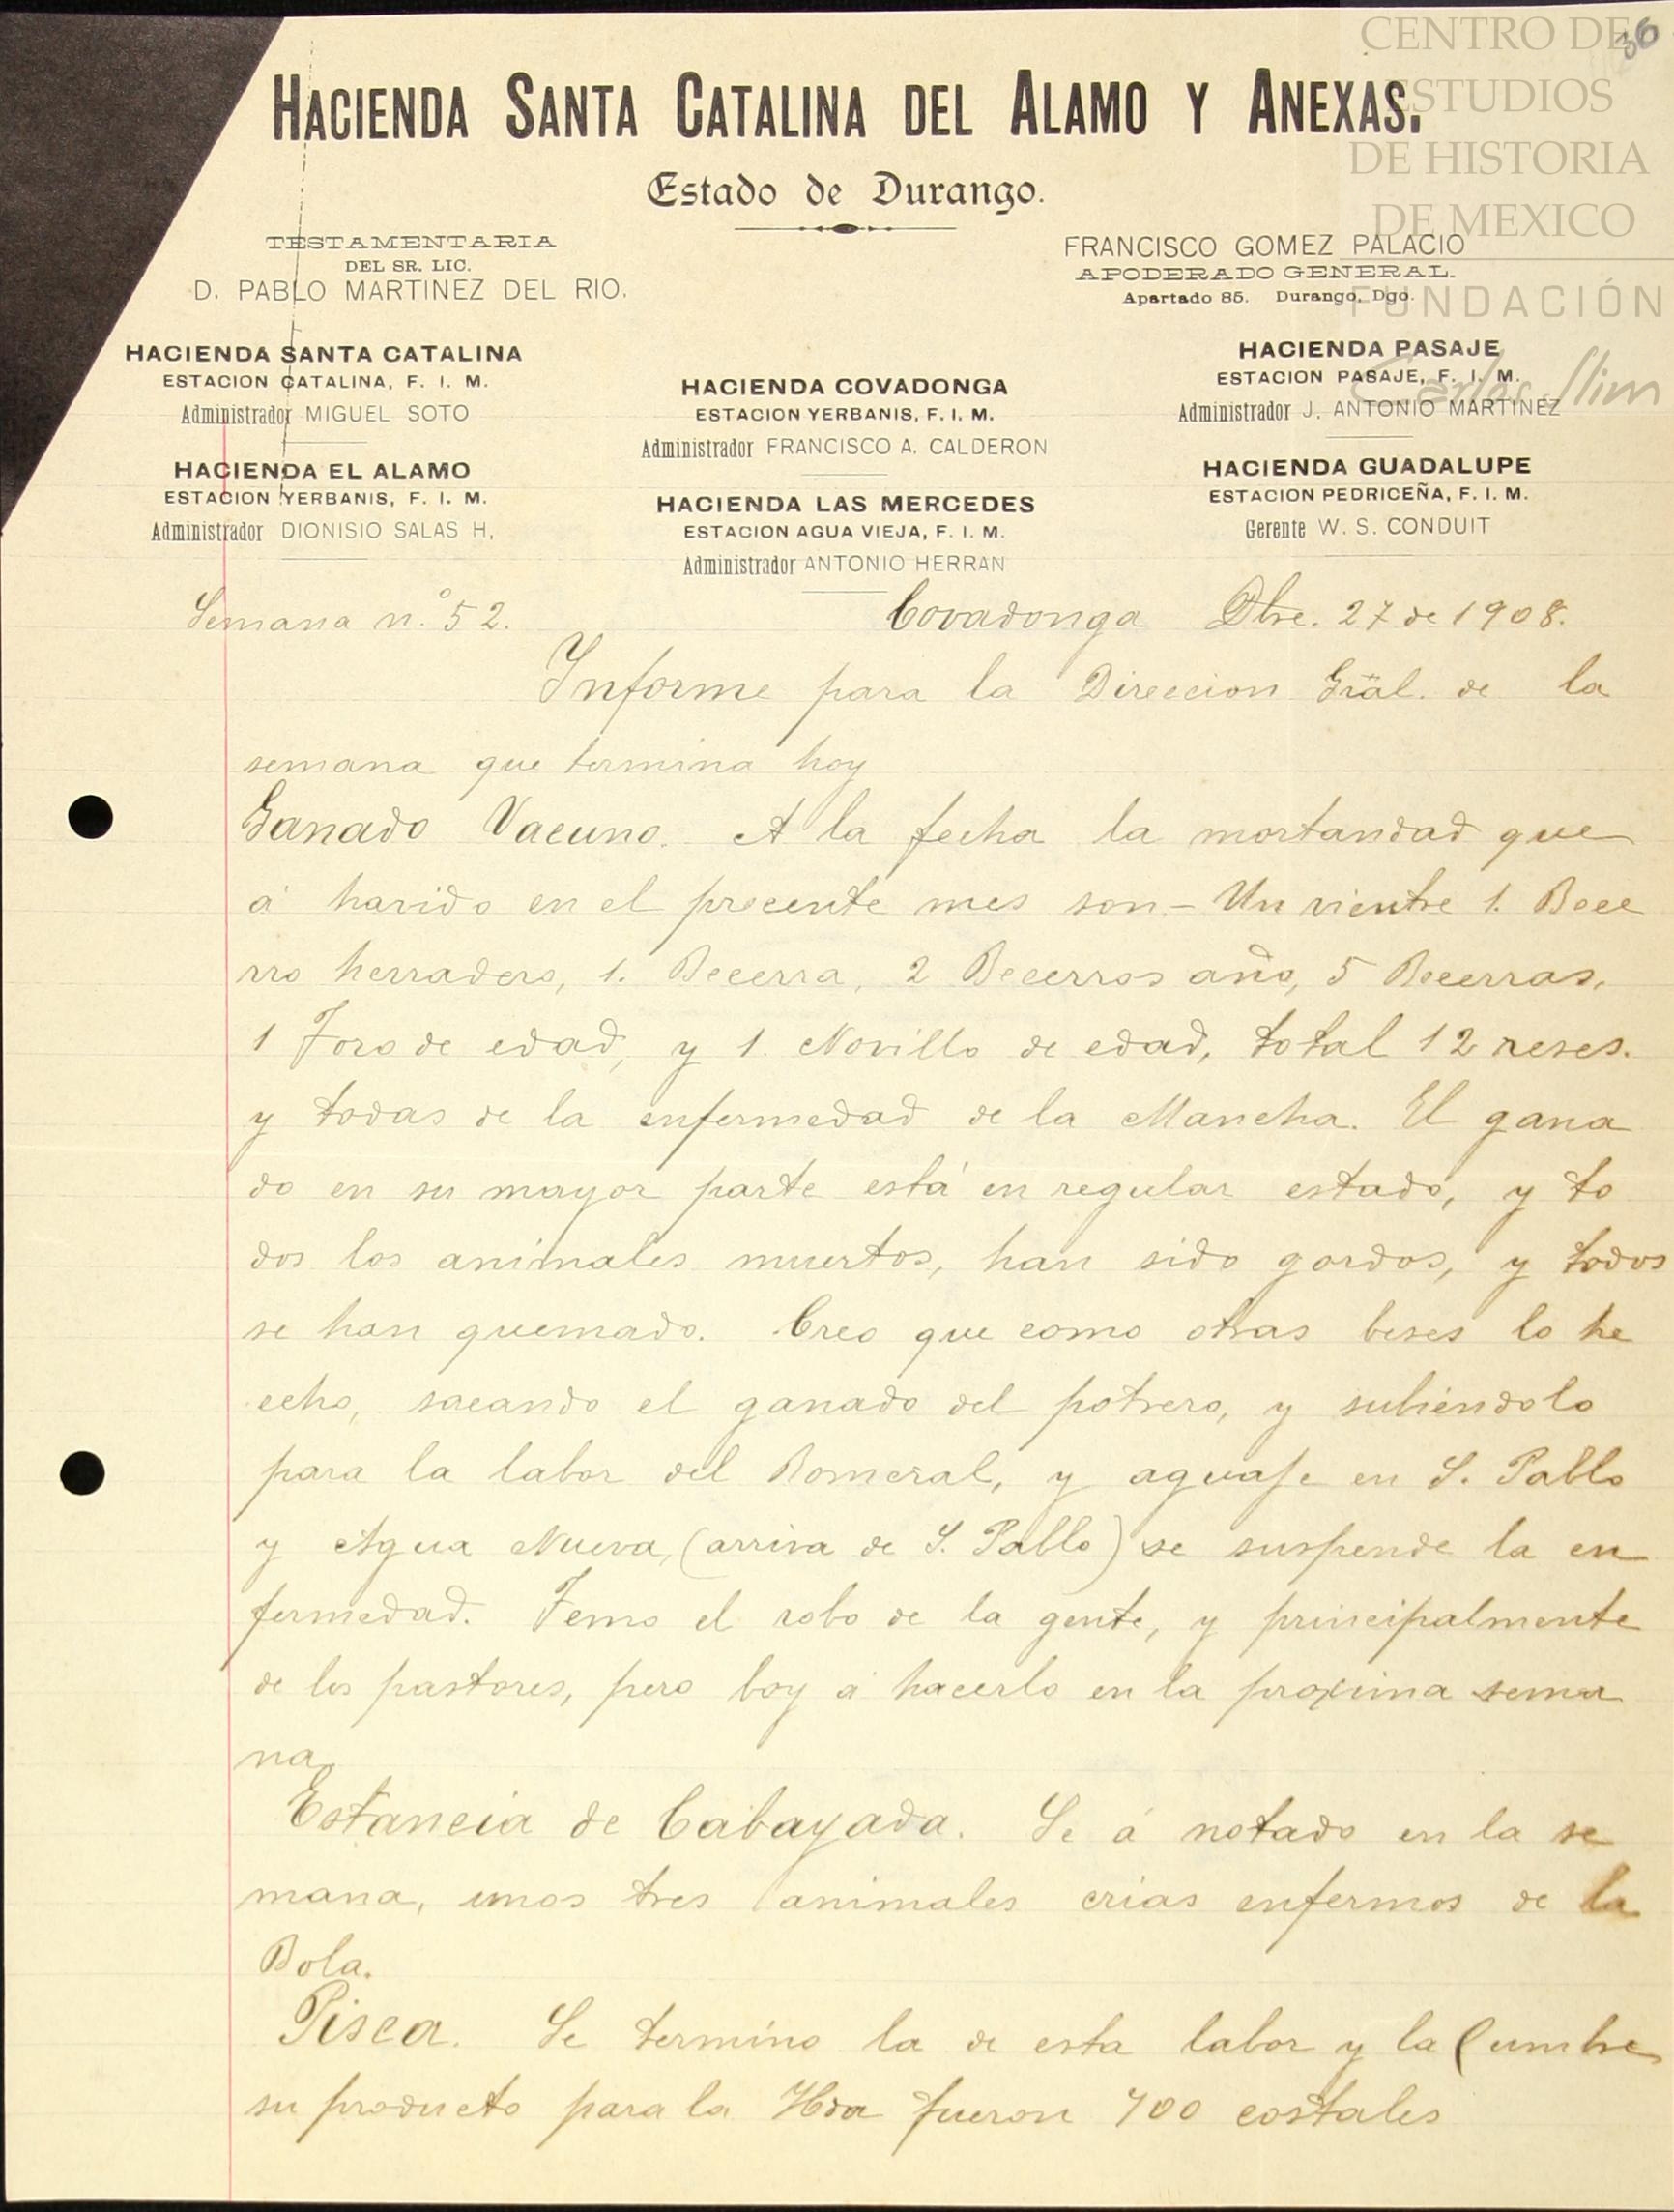 36
CENTRO DE
ESTUDIOS
DE HISTORIA
DE MEXICO
FUNDACIÓN
Carlos Slim
HACIENDA SANTA CATALINA DEL ALAMO Y ANEXAS.
Estado de Durango.
TESTAMENTARIA
DEL SR. LIC.
D. PABLO MARTINEZ DEL RIO.
FRANCISCO GOMEZ PALACIO
APODERADO GENERAL.
Apartado 85. Durango, Dgo.
HACIENDA SANTA CATALINA
ESTACION CATALINA, F. I. M.
Administrador MIGUEL SOTO
HACIENDA EL ALAMO
ESTACION YERBANIS, F. I. M.
Administrador DIONISIO SALAS H,
HACIENDA COVADONGA
ESTACION YERBANIS, F. I. M.
Administrador FRANCISCO A. CALDERON
HACIENDA LAS MERCEDES
ESTACION AGUA VIEJA, F. I. M.
Administrador ANTONIO HERRAN
HACIENDA PASAJE
ESTACION PASAJE, F. I. M.
Administrador J. ANTONIO MARTINEZ
HACIENDA GUADALUPE
ESTACION PEDRICEÑA, F. I. M.
Gerente W. S. CONDUIT
Semana n.º 52.
Covadonga Dbre. 27 de 1908.
Informe para la Direccion Gräl. de la
semana que termina hoy
Ganado Vacuno. A la fecha la mortandad que
á havido en el precente mes son - Un vientre 1. Bece
rro herradero, 1. Becerra, 2 Becerros año, 5 Becerras,
1 Toro de edad, y 1. Novillo de edad, total 12 reses.
y todas de la enfermedad de la Mancha. El gana
do en su mayor parte está en regular estado, y to
dos los animales muertos, han sido gordos, y todos
se han quemado. Creo que como otras beses lo he
echo, sacando el ganado del potrero, y subiéndolo
para la labor del Romeral, y aguaje en S. Pablo
y Agua Nueva, (arriva de S. Pablo) se suspende la en
fermedad. Temo el robo de la gente, y principalmente
de los pastores, pero boy á hacerlo en la proxima sema
na.
Estancia de Cabayada. Se á notado en la se
mana, unos tres animales crias enfermos de la
Bola.
Pisca. Se termino la de esta labor y la Cumbre
su producto para la Hda fueron 700 costales